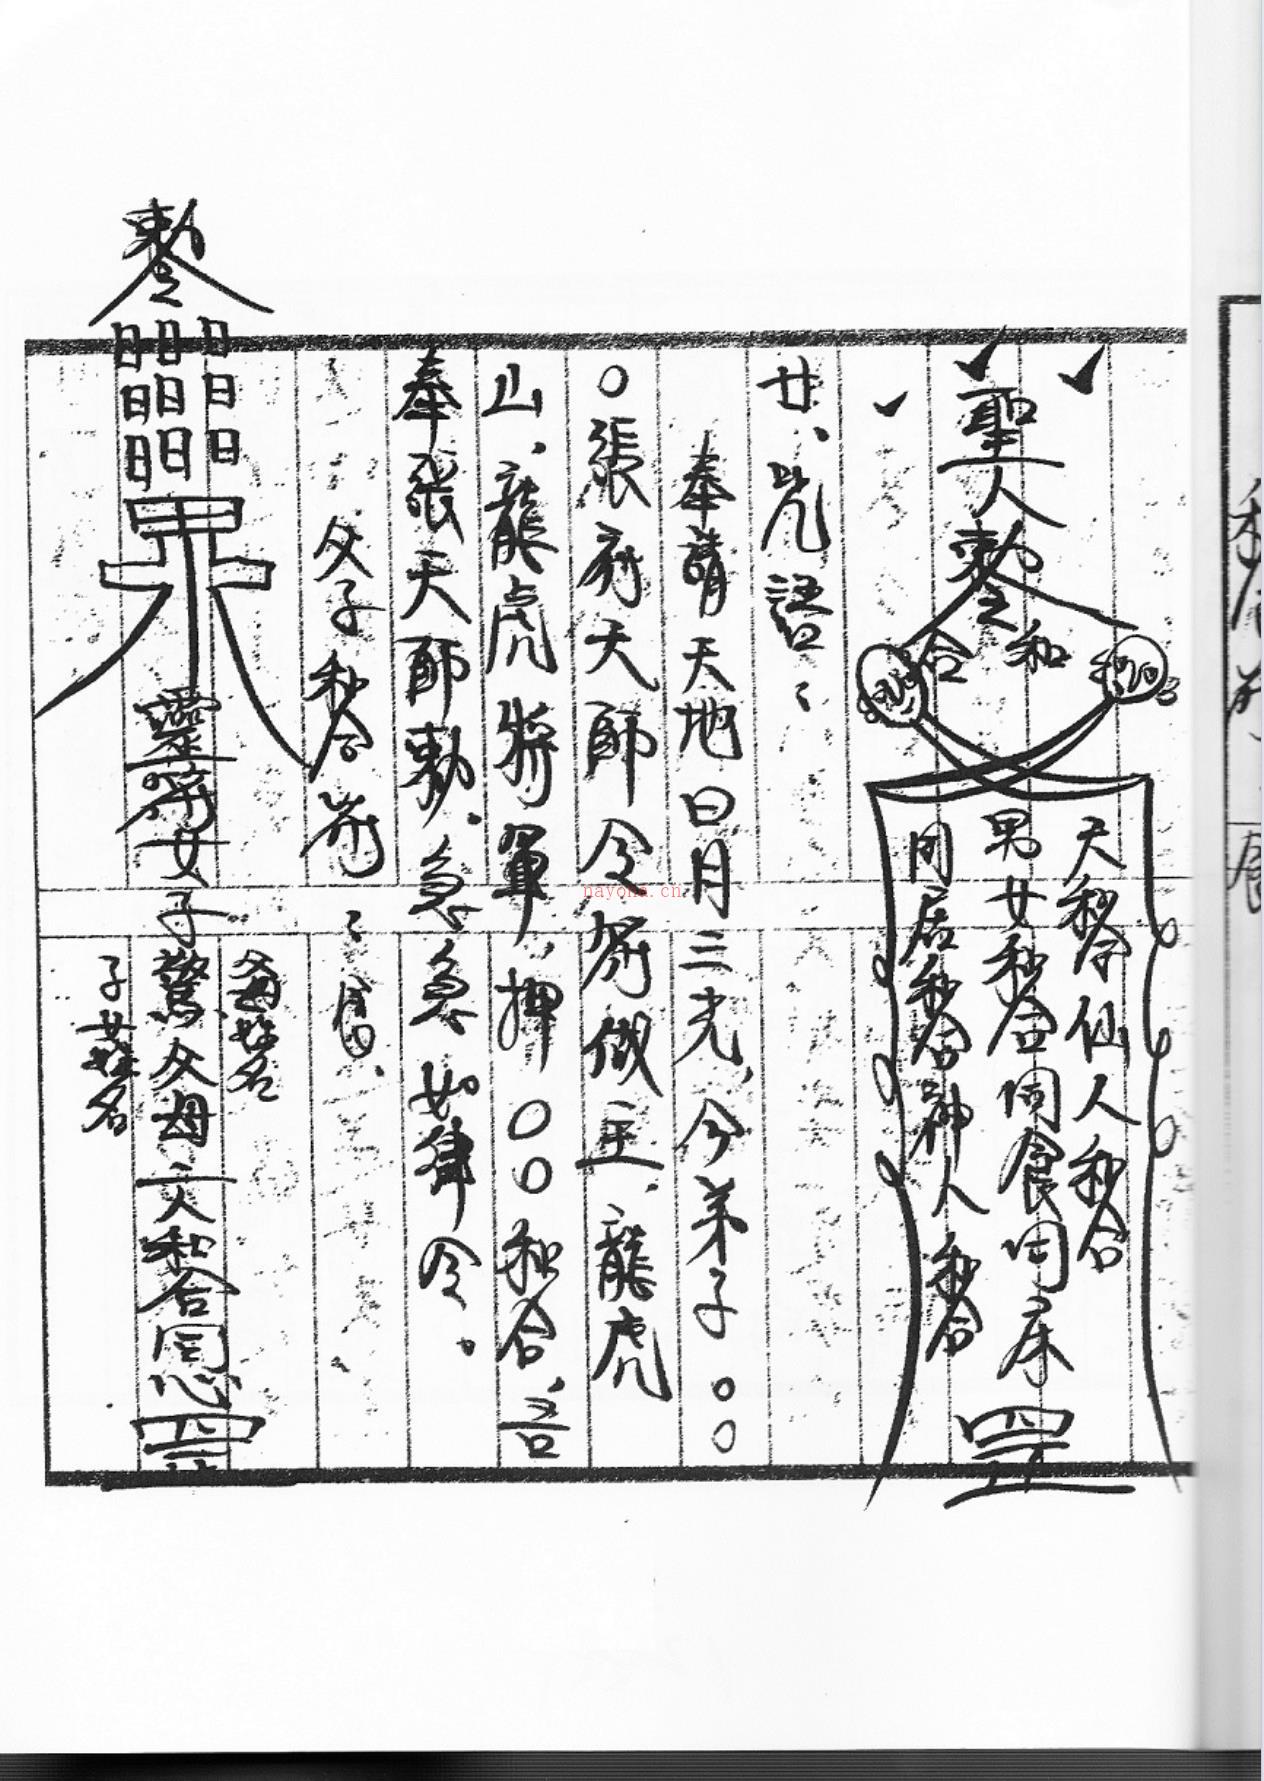 聖人
敕令
和合
天和合仙人和合
男女和合同食同床
同居和合神人和合
罡
廿、咒語:
奉請天地日月三光、今弟子○○
○張府天師令符做主、龍虎
山、龍虎將軍、押○○和合、言
奉張天師敕、急急如律令。
父子和合符
敕令
日日日
日日日
日日日
靈符女子驚父母文和合同心罡
父母姓名
子女姓名
nayona.cn